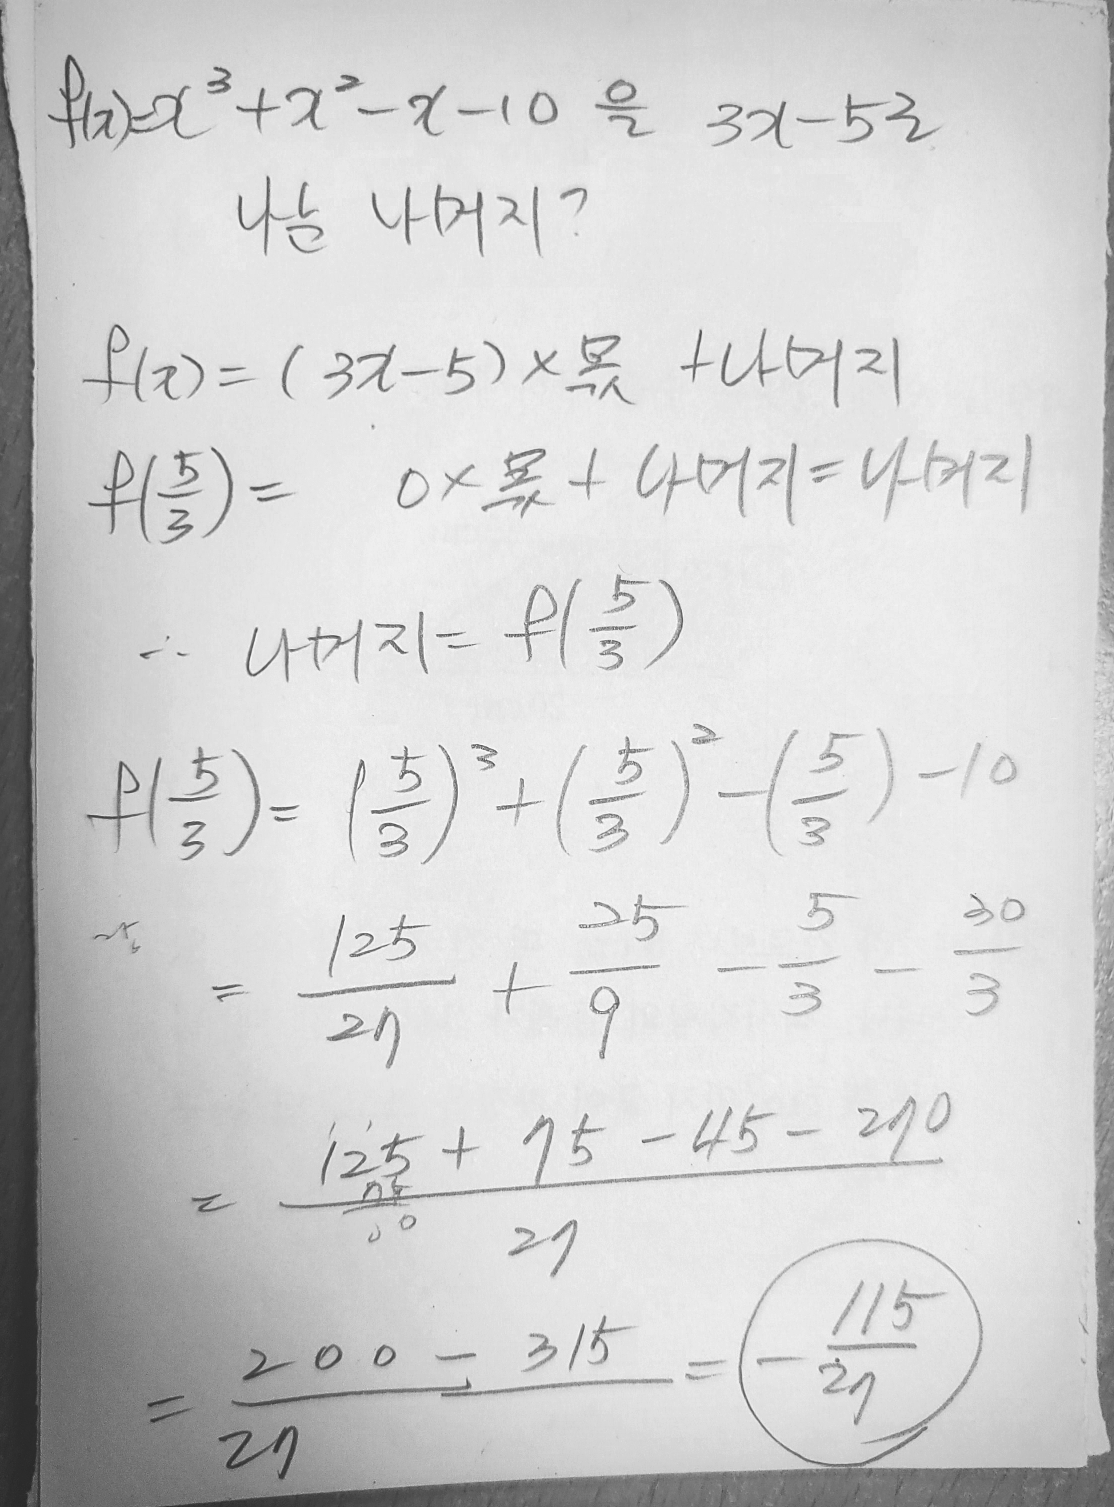 f(x)=x³+x²-x-10 을 3x-5로
나눈 나머지?
f(x)=(3x-5)×몫 +나머지
f(5/3)= 0×몫+나머지=나머지
∴ 나머지=f(5/3)
f(5/3)=(5/3)³+(5/3)²-(5/3)-10
= 125/27 + 25/9 - 5/3 - 30/3
= (125+75-45-270)/27
= (200-315)/27 = -115/27